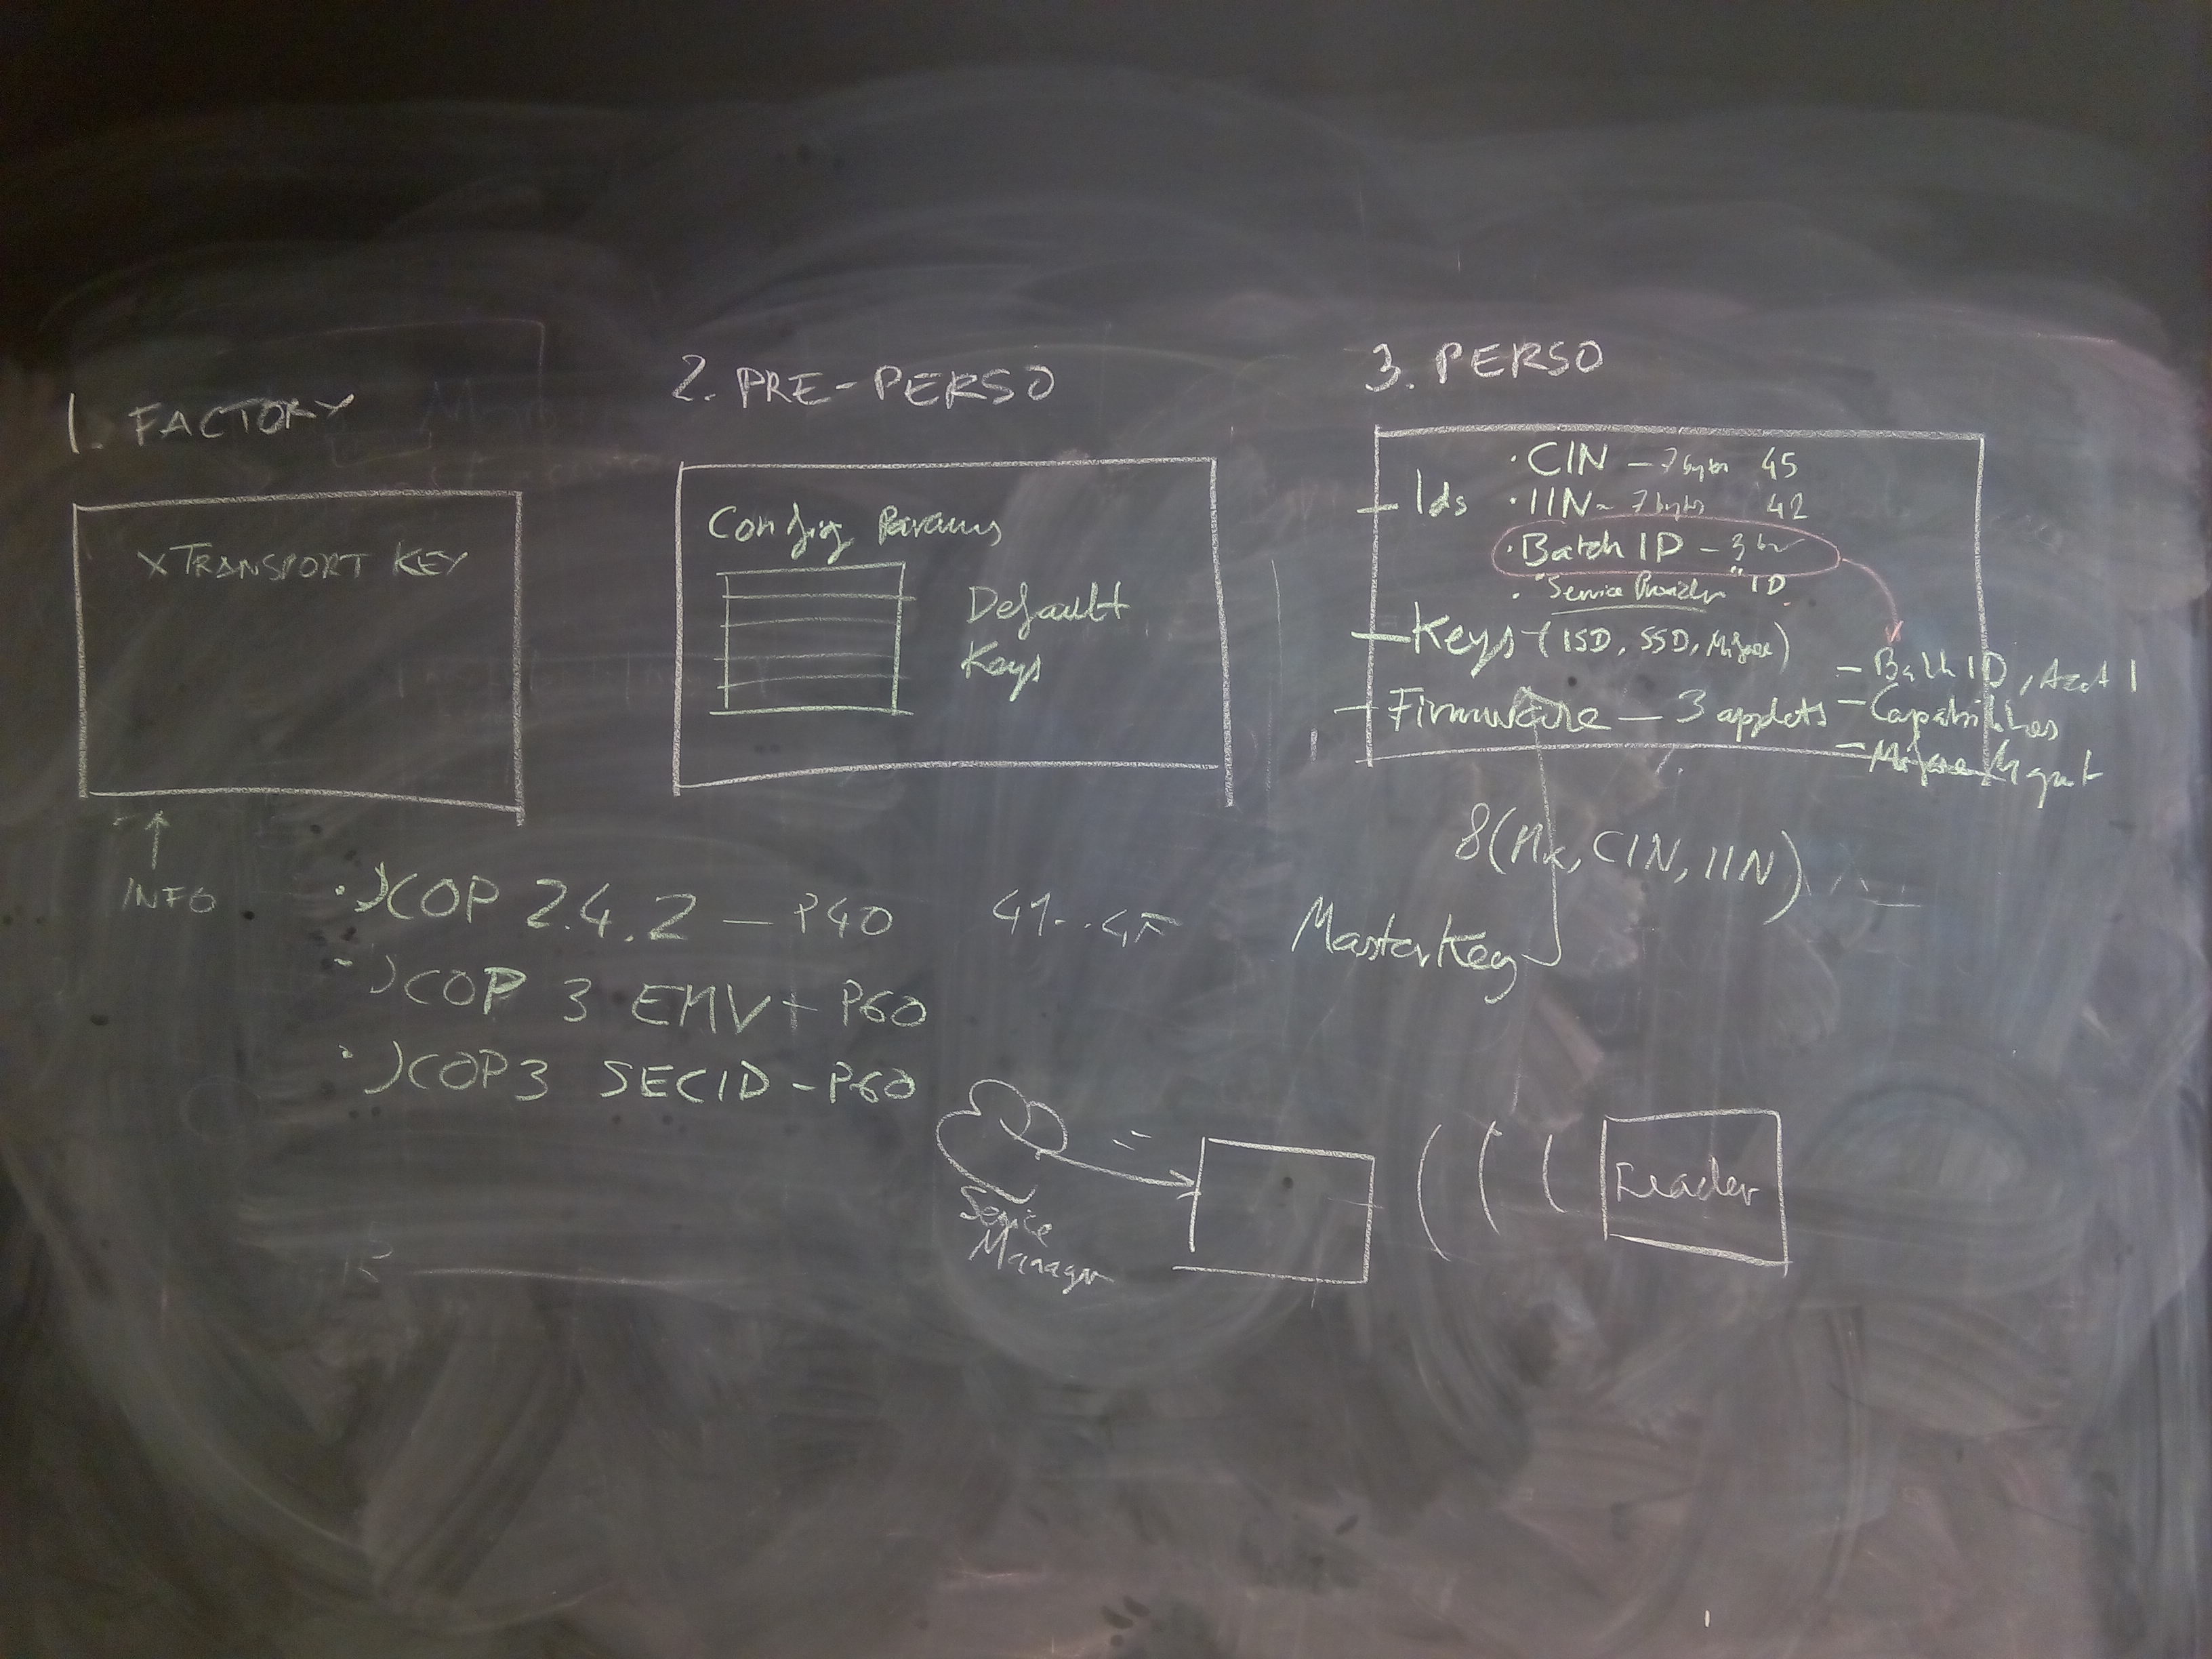 1. FACTORY
X TRANSPORT KEY
INFO
2. PRE-PERSO
Config Params
Default
Keys
3. PERSO
- Ids
· CIN - 7 bytes 45
· IIN - 7 bytes 42
· Batch ID - 3
· "Service Provider" ID
- Keys - (ISD, SSD, Mifare)
- Firmware - 3 applets
- Batch ID,
- Capabilities
- Mifare Mgmt
(MK, CIN, IIN)
Master Key
· JCOP 2.4.2 - P40
· JCOP 3 EMV + P60
· JCOP3 SECID - P60
Service
Manager
Reader